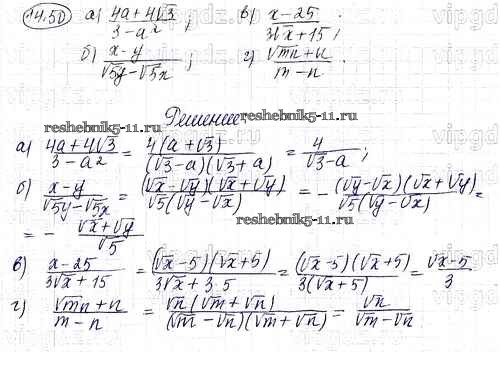 14.50 а) (4a+4√3)/(3-a²); в) (x-25)/(3√x+15);
б) (x-y)/(√5y-√5x); г) (√mn+n)/(m-n).
Решение
reshebnik5-11.ru
reshebnik5-11.ru
а) (4a+4√3)/(3-a²) = 4(a+√3)/((√3-a)(√3+a)) = 4/(√3-a);
б) (x-y)/(√5y-√5x) = (√x-√y)(√x+√y)/(√5(√y-√x)) = -(√y-√x)(√x+√y)/(√5(√y-√x)) =
= - (√x+√y)/√5
reshebnik5-11.ru
в) (x-25)/(3√x+15) = (√x-5)(√x+5)/(3√x+3·5) = (√x-5)(√x+5)/(3(√x+5)) = (√x-5)/3
г) (√mn+n)/(m-n) = √n(√m+√n)/((√m-√n)(√m+√n)) = √n/(√m-√n)